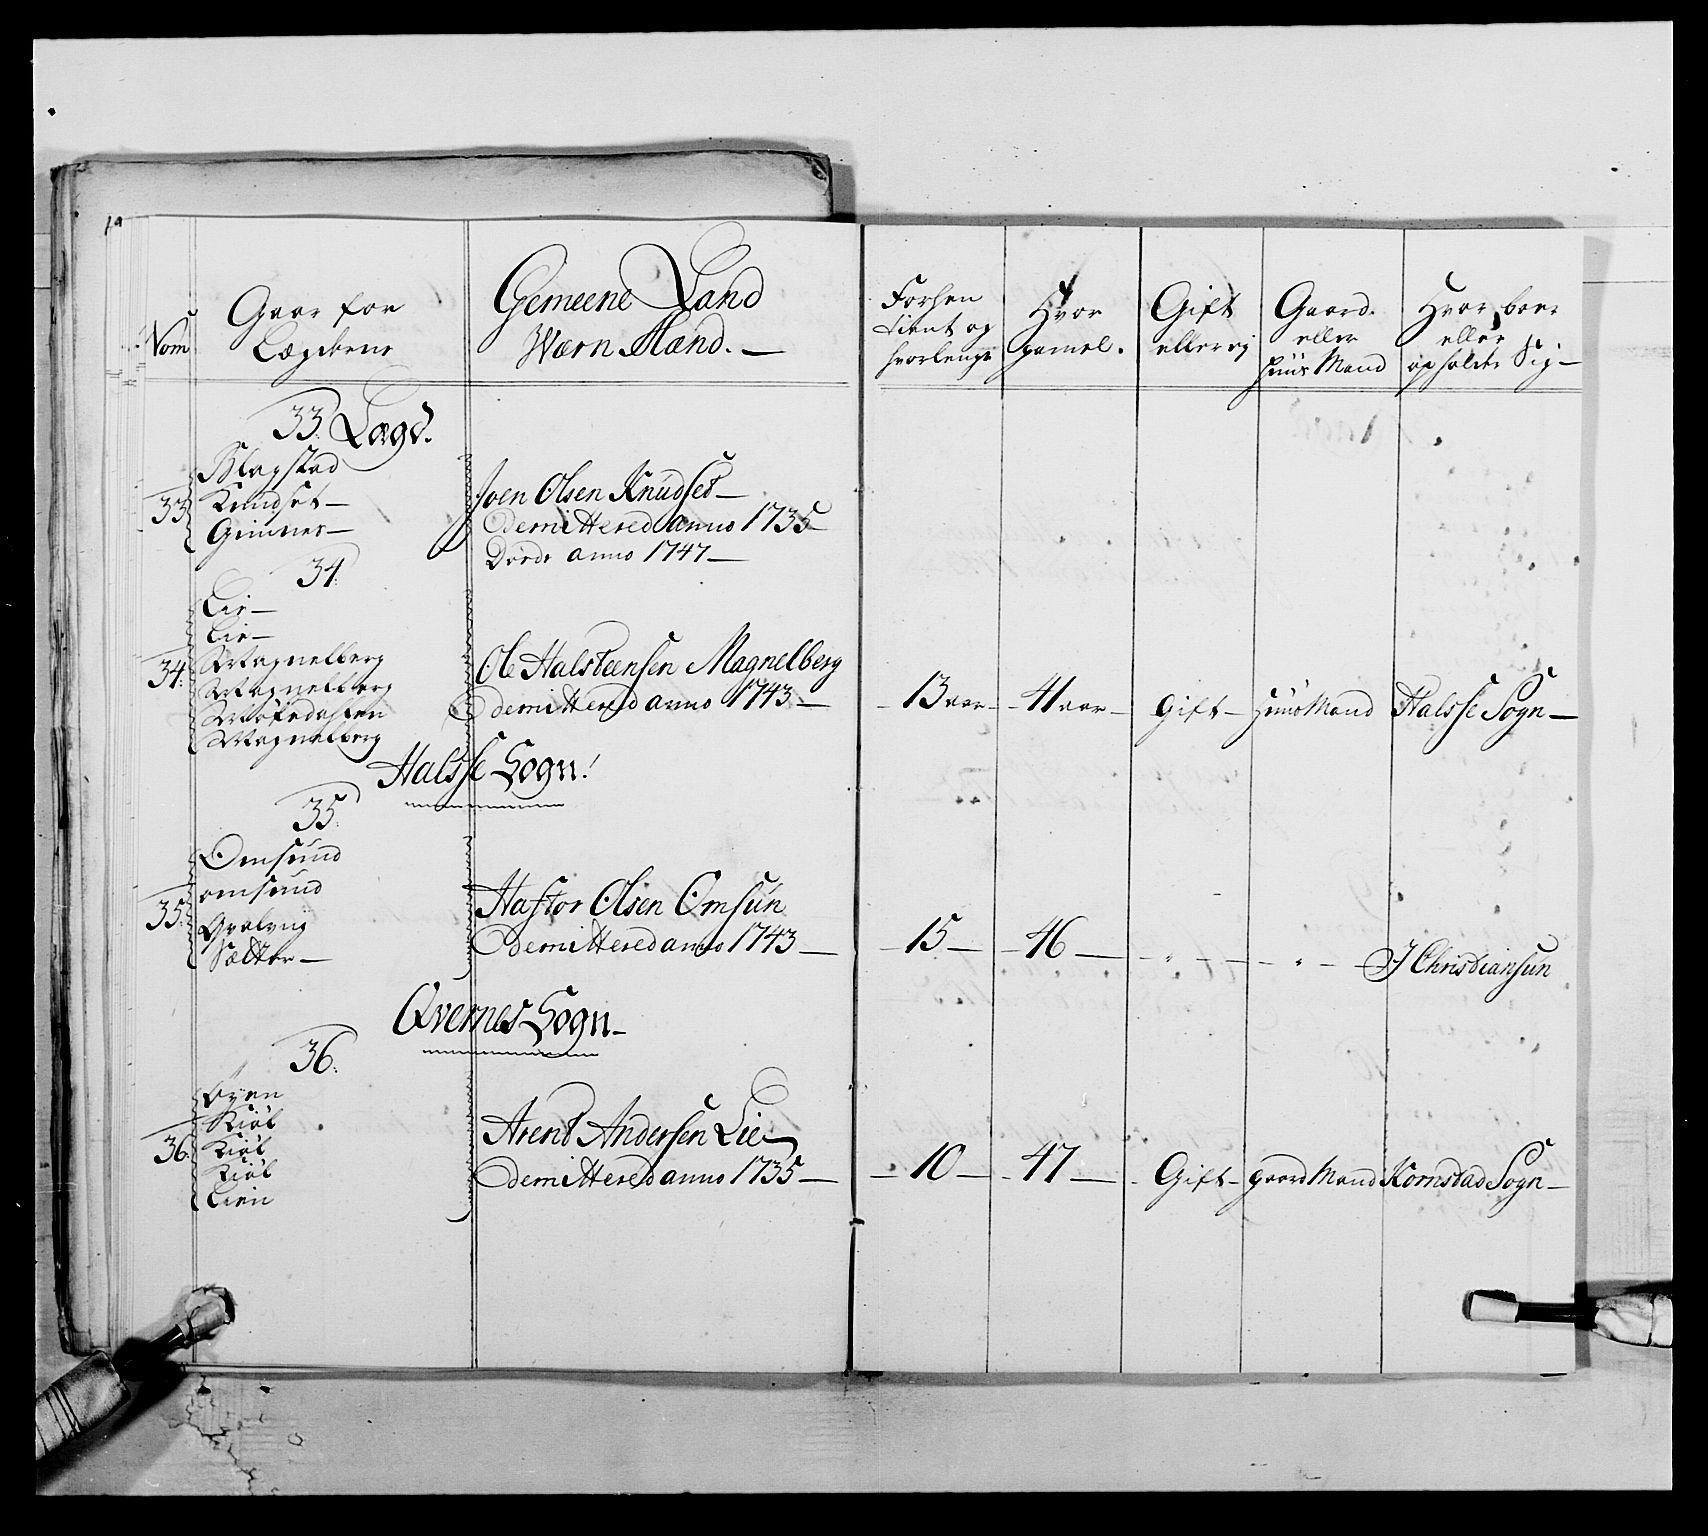 Nom
Gaar for
Lægderne
Gemeene Land
Wærn Mænd. —
Forhen
tient og
hvorlenge
Hvor
gamel.
Gift
eller ej
Gaard.
eller
huus Mand
Hvor boer
eller
opholder Sig —
33 Lægd.
33
Blagstad
Knudset —
Gimnes —
Joen Olsen Knudset —
demittered anno 1735
Døde anno 1747 —
34:
34:
Lie —
Lie —
Magnelberg
Magnelberg
Magnelberg
Ole Halsteensen Magnelberg
demittered anno 1743 —
— 13 aar — — 41 aar — Gift — huusMand Halsse Sogn —
Halsse Sogn!
35:
35:
Omsund
omsund
Qvalvug
Sætter —
Hastor Olsen Omsun
demittered anno 1743 —
— 15 — — 46 — — " — — " — J Christiansun
Qvernes Sogn —
36:
36:
Øyen
Kiøl
Kiøl
Kiøl
Lien
Arent Andersen Lie
demittered anno 1735 —
— 10 — — 47 — - Gift — gaardMand Kornstad Sogn —